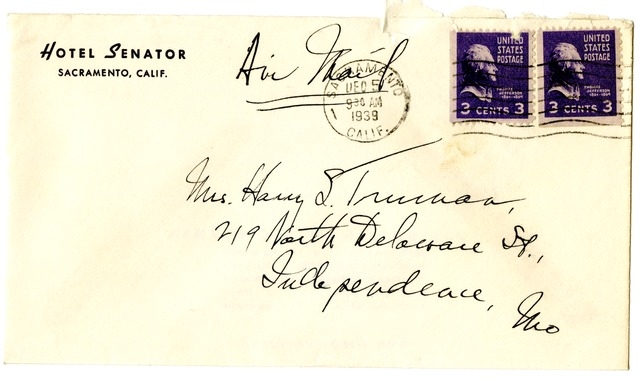 HOTEL SENATOR
SACRAMENTO, CALIF.
Air Mail
SACRAMENTO
DEC 5
9:30 AM
1939
CALIF.
1
UNITED STATES POSTAGE
THOMAS JEFFERSON
1801-1809
3 CENTS 3
UNITED STATES POSTAGE
THOMAS JEFFERSON
1801-1809
3 CENTS 3
Mrs. Harry S. Truman,
219 North Delaware St.,
Independence,
Mo